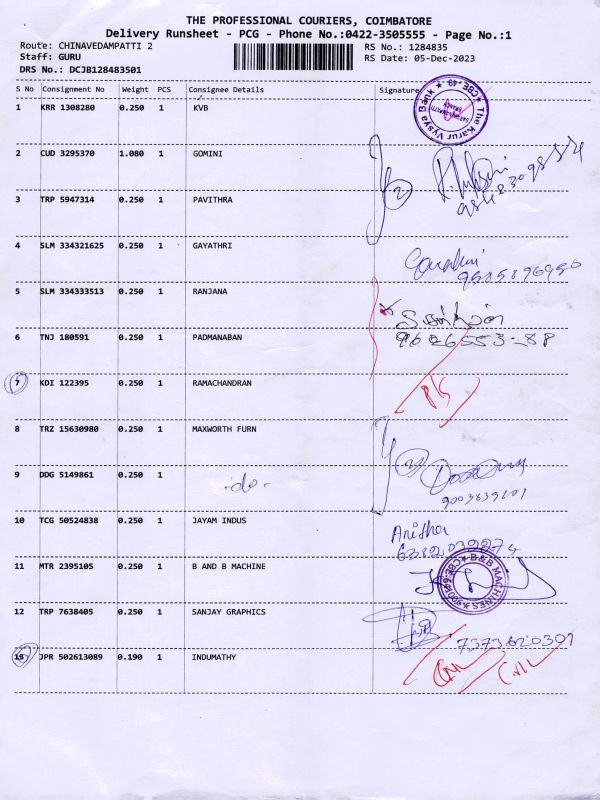 THE PROFESSIONAL COURIERS, COIMBATORE
Delivery Runsheet - PCG - Phone No.:0422-3505555 - Page No.:1
Route: CHINAVEDAMPATTI 2 RS No.: 1284835
Staff: GURU RS Date: 05-Dec-2023
DRS No.: DCJB128483501
S No Consignment No Weight PCS Consignee Details Signature
1 KRR 1308280 0.250 1 KVB
The Karur Vysya Bank ★ CBE-49 ★
2 CUD 3295370 1.080 1 GOMINI
3 TRP 5947314 0.250 1 PAVITHRA
4 SLM 334321625 0.250 1 GAYATHRI
9585896956
5 SLM 334333513 0.250 1 RANJANA
6 TNJ 180591 0.250 1 PADMANABAN
9626553-88
7 KDI 122395 0.250 1 RAMACHANDRAN
8 TRZ 15630980 0.250 1 MAXWORTH FURN
9 DDG 5149861 0.250 1 -do-
10 TCG 50524838 0.250 1 JAYAM INDUS
Anitha
6382039274
11 MTR 2395105 0.250 1 B AND B MACHINE
B&B MACHINES
12 TRP 7638405 0.250 1 SANJAY GRAPHICS
7373620301
13 JPR 502613089 0.190 1 INDUMATHY